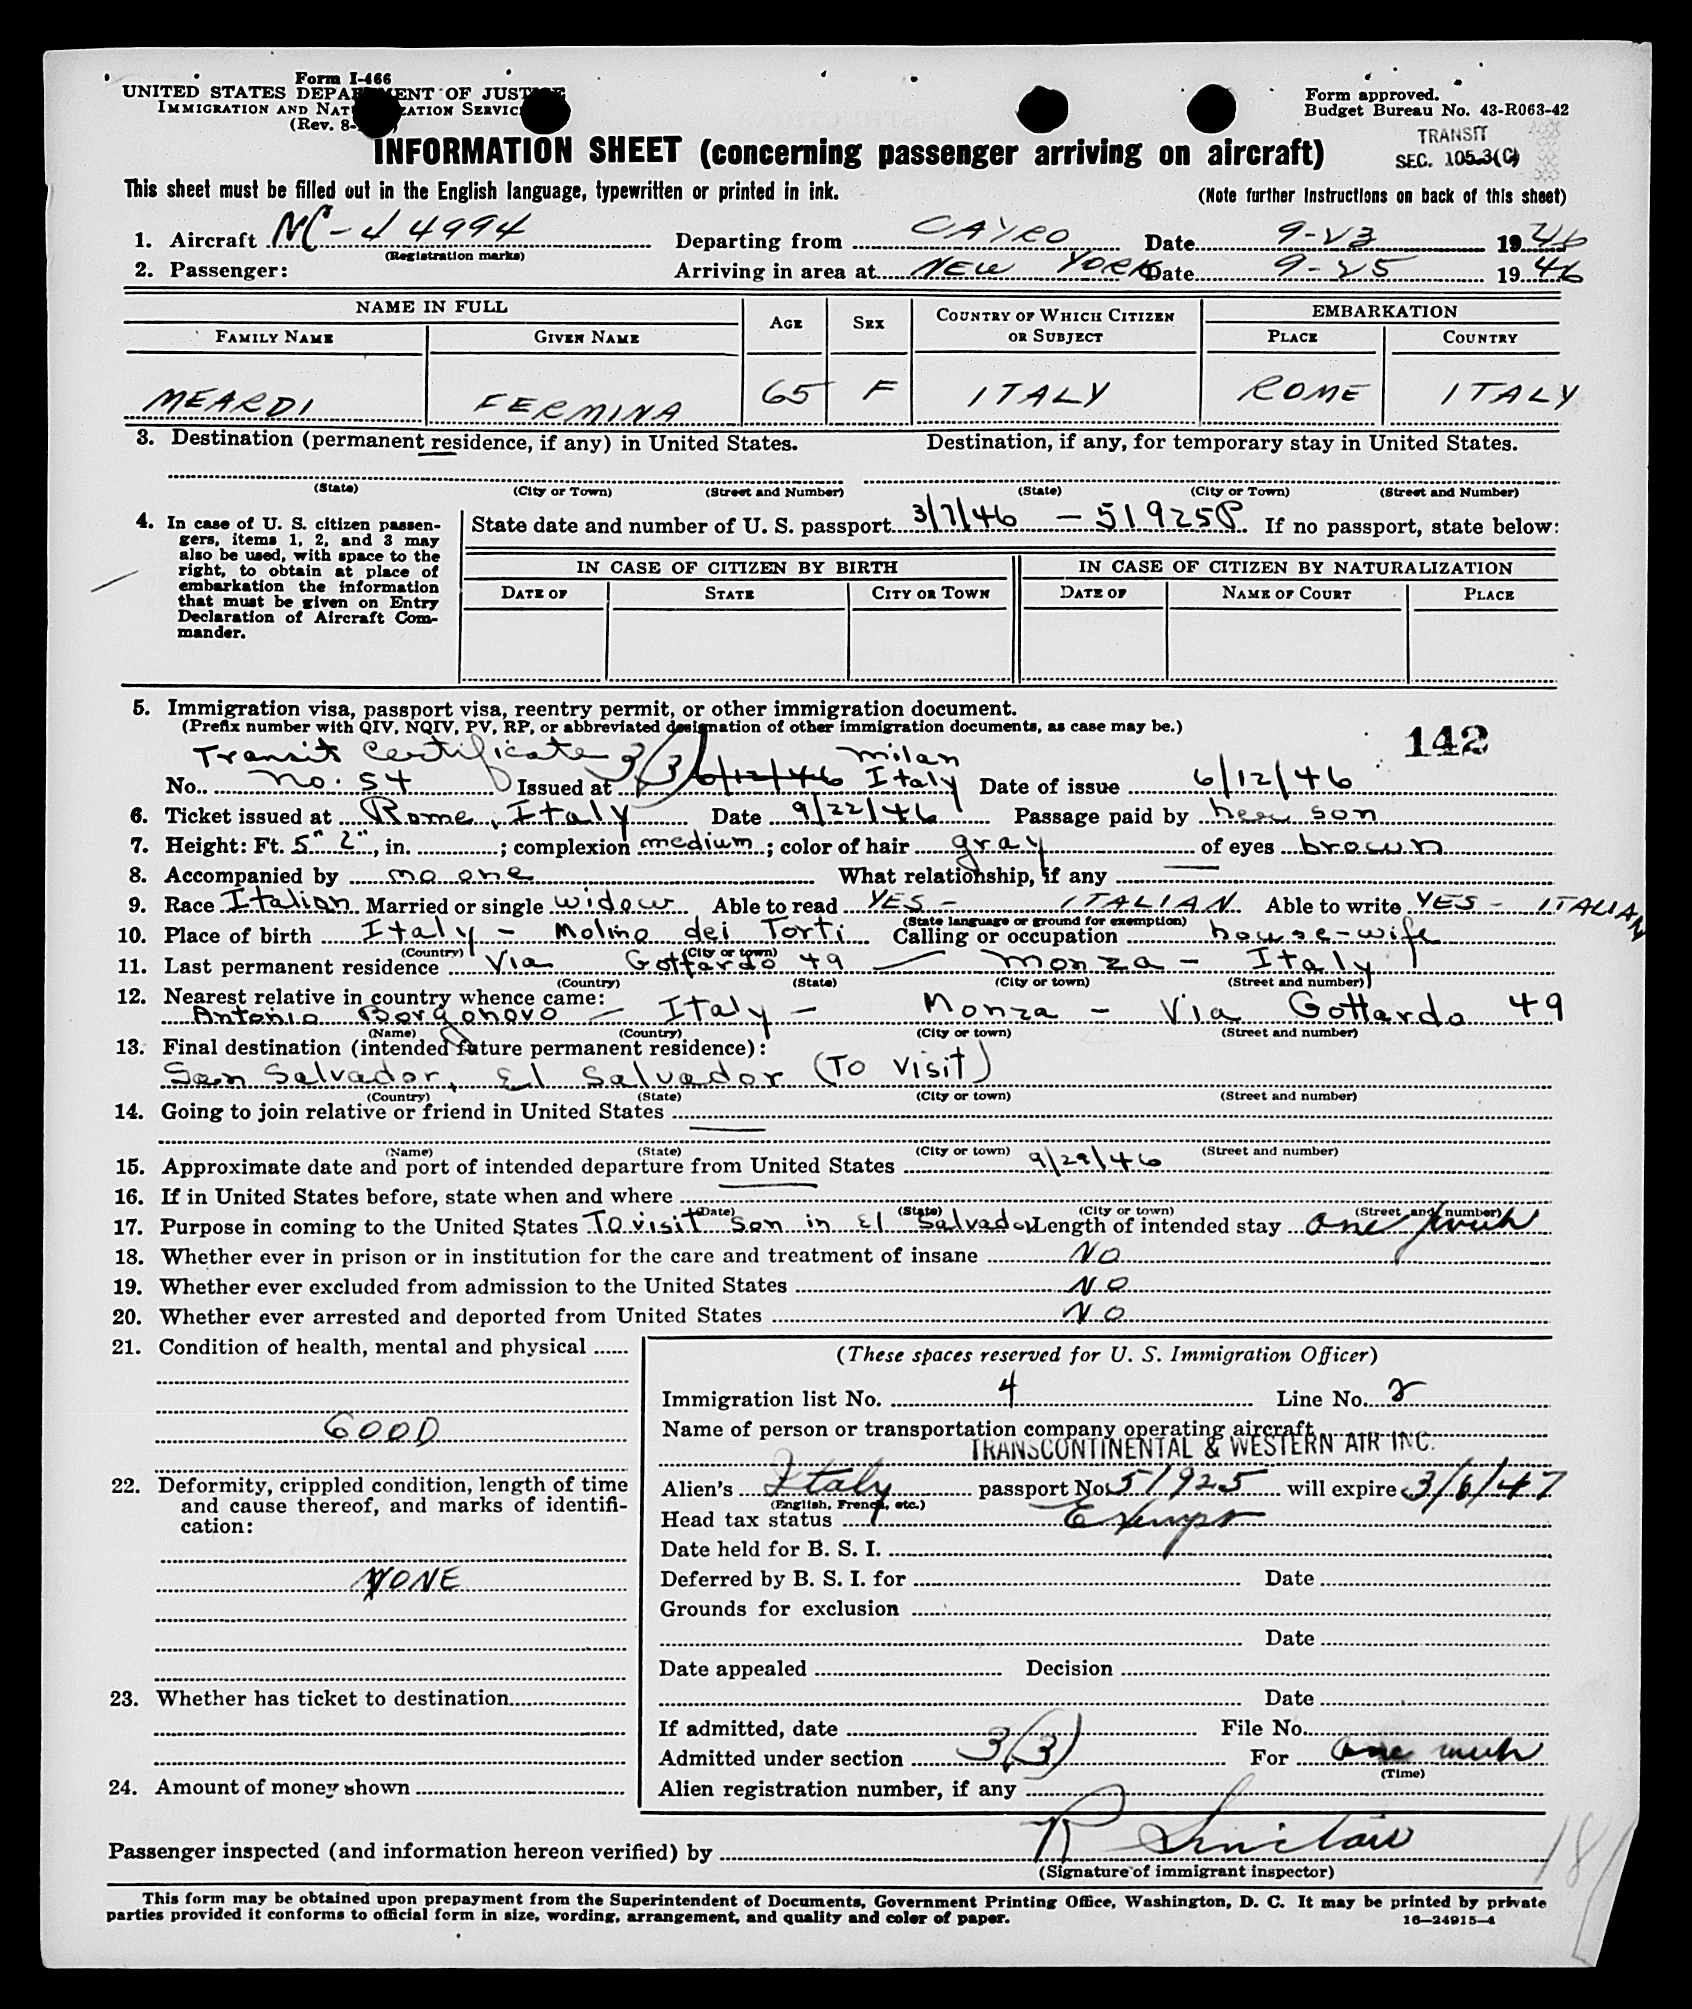 Form I-466
UNITED STATES DEPARTMENT OF JUSTICE
IMMIGRATION AND NATURALIZATION SERVICE
(Rev. 8-
Form approved.
Budget Bureau No. 43-R063-42
TRANSIT
SEC. 105.3(C)
INFORMATION SHEET (concerning passenger arriving on aircraft)
This sheet must be filled out in the English language, typewritten or printed in ink.
(Note further instructions on back of this sheet)
1. Aircraft NC-44994 Departing from CAYRO Date 9-23 1946
(Registration marks)
2. Passenger: Arriving in area at NEW YORK Date 9-25 1946
NAME IN FULL AGE SEX COUNTRY OF WHICH CITIZEN OR SUBJECT EMBARKATION
FAMILY NAME GIVEN NAME PLACE COUNTRY
MEARDI FERMINA 65 F ITALY ROME ITALY
3. Destination (permanent residence, if any) in United States. Destination, if any, for temporary stay in United States.
(State) (City or Town) (Street and Number) (State) (City or Town) (Street and Number)
4. In case of U. S. citizen passengers, items 1, 2, and 3 may also be used, with space to the right, to obtain at place of embarkation the information that must be given on Entry Declaration of Aircraft Commander.
State date and number of U. S. passport 3/7/46 - 51925P. If no passport, state below:
IN CASE OF CITIZEN BY BIRTH IN CASE OF CITIZEN BY NATURALIZATION
DATE OF STATE CITY OR TOWN DATE OF NAME OF COURT PLACE
5. Immigration visa, passport visa, reentry permit, or other immigration document.
(Prefix number with QIV, NQIV, PV, RP, or abbreviated designation of other immigration documents, as case may be.)
142
Transit Certificate 3(3) milan
No. no. 54 Issued at 6/12/46 Italy Date of issue 6/12/46
6. Ticket issued at Rome, Italy Date 9/22/46 Passage paid by her son
7. Height: Ft. 5" 2", in. ; complexion medium; color of hair gray of eyes brown
8. Accompanied by no one What relationship, if any
9. Race Italian Married or single widow Able to read YES - ITALIAN Able to write YES - ITALIAN
(State language or ground for exemption)
10. Place of birth Italy - Molino dei Torti Calling or occupation house-wife
(Country) (City or town)
11. Last permanent residence Via Gottardo 49 - monza - Italy
(Country) (State) (City or town) (Street and number)
12. Nearest relative in country whence came:
Antonio Borgonovo - Italy - Monza - Via Gottardo 49
(Name) (Country) (City or town) (Street and number)
13. Final destination (intended future permanent residence):
San Salvador, El Salvador (To visit)
(Country) (State) (City or town) (Street and number)
14. Going to join relative or friend in United States
(Name) (State) (City or town) (Street and number)
15. Approximate date and port of intended departure from United States 9/29/46
16. If in United States before, state when and where
(Date) (State) (City or town) (Street and number)
17. Purpose in coming to the United States To visit son in El Salvador Length of intended stay one week
18. Whether ever in prison or in institution for the care and treatment of insane NO
19. Whether ever excluded from admission to the United States NO
20. Whether ever arrested and deported from United States NO
21. Condition of health, mental and physical
GOOD
22. Deformity, crippled condition, length of time and cause thereof, and marks of identification:
NONE
23. Whether has ticket to destination
24. Amount of money shown
(These spaces reserved for U. S. Immigration Officer)
Immigration list No. 4 Line No. 2
Name of person or transportation company operating aircraft
TRANSCONTINENTAL & WESTERN AIR INC.
Alien's Italy passport No. 51925 will expire 3/6/47
(English, French, etc.)
Head tax status Exempt
Date held for B. S. I.
Deferred by B. S. I. for Date
Grounds for exclusion
Date
Date appealed Decision
Date
If admitted, date File No.
Admitted under section 3(3) For one week
(Time)
Alien registration number, if any
Passenger inspected (and information hereon verified) by R Sinclair
(Signature of immigrant inspector)
This form may be obtained upon prepayment from the Superintendent of Documents, Government Printing Office, Washington, D. C. It may be printed by private
parties provided it conforms to official form in size, wording, arrangement, and quality and color of paper.
16-24915-4